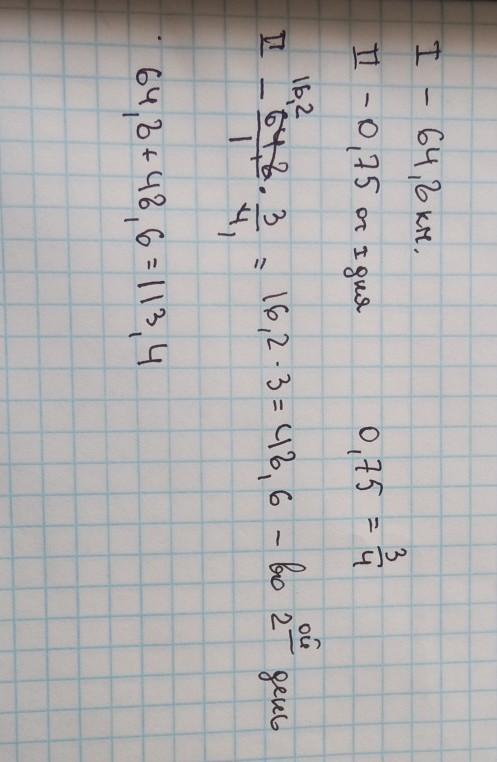 I - 64,8 км.
II - 0,75 от I дня 0,75 = 3/4
II - 64,8/1 · 3/4 = 16,2 · 3 = 48,6 - во 2ой день
16,2 1
64,8 + 48,6 = 113,4